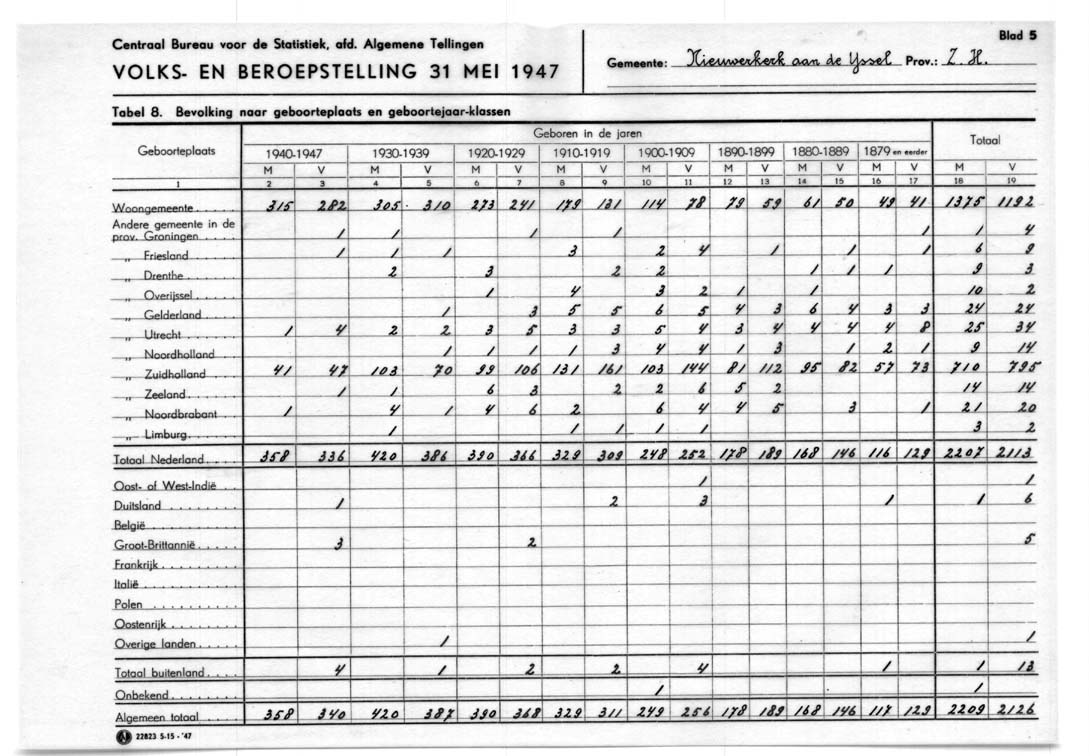 Centraal Bureau voor de Statistiek, afd. Algemene Tellingen
Blad 5
VOLKS- EN BEROEPSTELLING 31 MEI 1947
Gemeente: Nieuwerkerk aan de Yssel Prov.: Z. H.
Tabel 8. Bevolking naar geboorteplaats en geboortejaar-klassen
Geboorteplaats Geboren in de jaren Totaal
1940-1947 1930-1939 1920-1929 1910-1919 1900-1909 1890-1899 1880-1889 1879 en eerder
M V M V M V M V M V M V M V M V M V
1 2 3 4 5 6 7 8 9 10 11 12 13 14 15 16 17 18 19
Woongemeente 315 282 305 310 273 241 179 131 114 78 79 59 61 50 49 41 1375 1192
Andere gemeente in de
prov. Groningen 1 1 1 1 1 1 4
„ Friesland 1 1 1 3 2 4 1 1 1 6 9
„ Drenthe 2 3 2 2 1 1 1 9 3
„ Overijssel 1 4 3 2 1 1 10 2
„ Gelderland 1 3 5 5 6 5 4 3 6 4 3 3 24 24
„ Utrecht 1 4 2 2 3 5 3 3 5 4 3 4 4 4 4 8 25 34
„ Noordholland 1 1 1 1 3 4 4 1 3 1 2 1 9 14
„ Zuidholland 41 47 103 70 99 106 131 161 103 144 81 112 95 82 57 73 710 795
„ Zeeland 1 1 6 3 2 2 6 5 2 14 14
„ Noordbrabant 1 4 1 4 6 2 6 4 4 5 3 1 21 20
„ Limburg 1 1 1 1 1 3 2
Totaal Nederland 358 336 420 386 390 366 329 309 248 252 178 189 168 146 116 129 2207 2113
Oost- of West-Indië 1 1
Duitsland 1 2 3 1 1 6
België
Groot-Brittannië 3 2 5
Frankrijk
Italië
Polen
Oostenrijk
Overige landen 1 1
Totaal buitenland 4 1 2 2 4 1 1 13
Onbekend 1 1
Algemeen totaal 358 340 420 387 390 368 329 311 249 256 178 189 168 146 117 129 2209 2126
22823 S-15 - '47